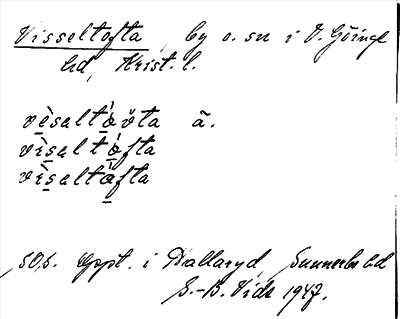 Visseltofta, by o. sn i V. Göinge
hd, Krist. l.
vè̱saltå̱̀vta ã.
vìs̱altå̱̀fta
vìs̱altå̱̀fta
SOS. Uppt. i Dallaryd, Sunnerbo hd
S.-B. Vide 1947.